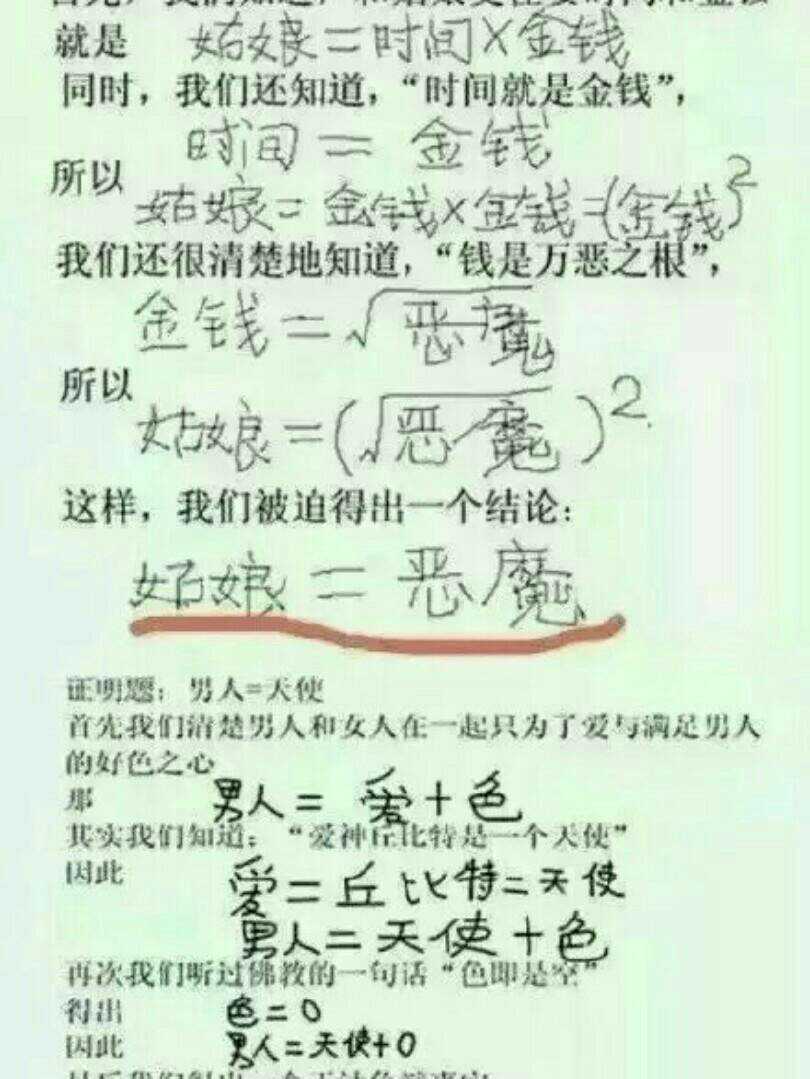 就是 姑娘=时间×金钱
同时，我们还知道，“时间就是金钱”，
时间 = 金钱
所以
姑娘=金钱×金钱=(金钱)²
我们还很清楚地知道，“钱是万恶之根”，
金钱=√恶魔
所以
姑娘=(√恶魔)².
这样，我们被迫得出一个结论：
姑娘=恶魔
证明题：男人=天使
首先我们清楚男人和女人在一起只为了爱与满足男人
的好色之心
那 男人= 爱+色
其实我们知道：“爱神丘比特是一个天使”
因此 爱=丘比特=天使
男人=天使+色
再次我们听过佛教的一句话“色即是空”
得出 色=0
因此 男人=天使+0